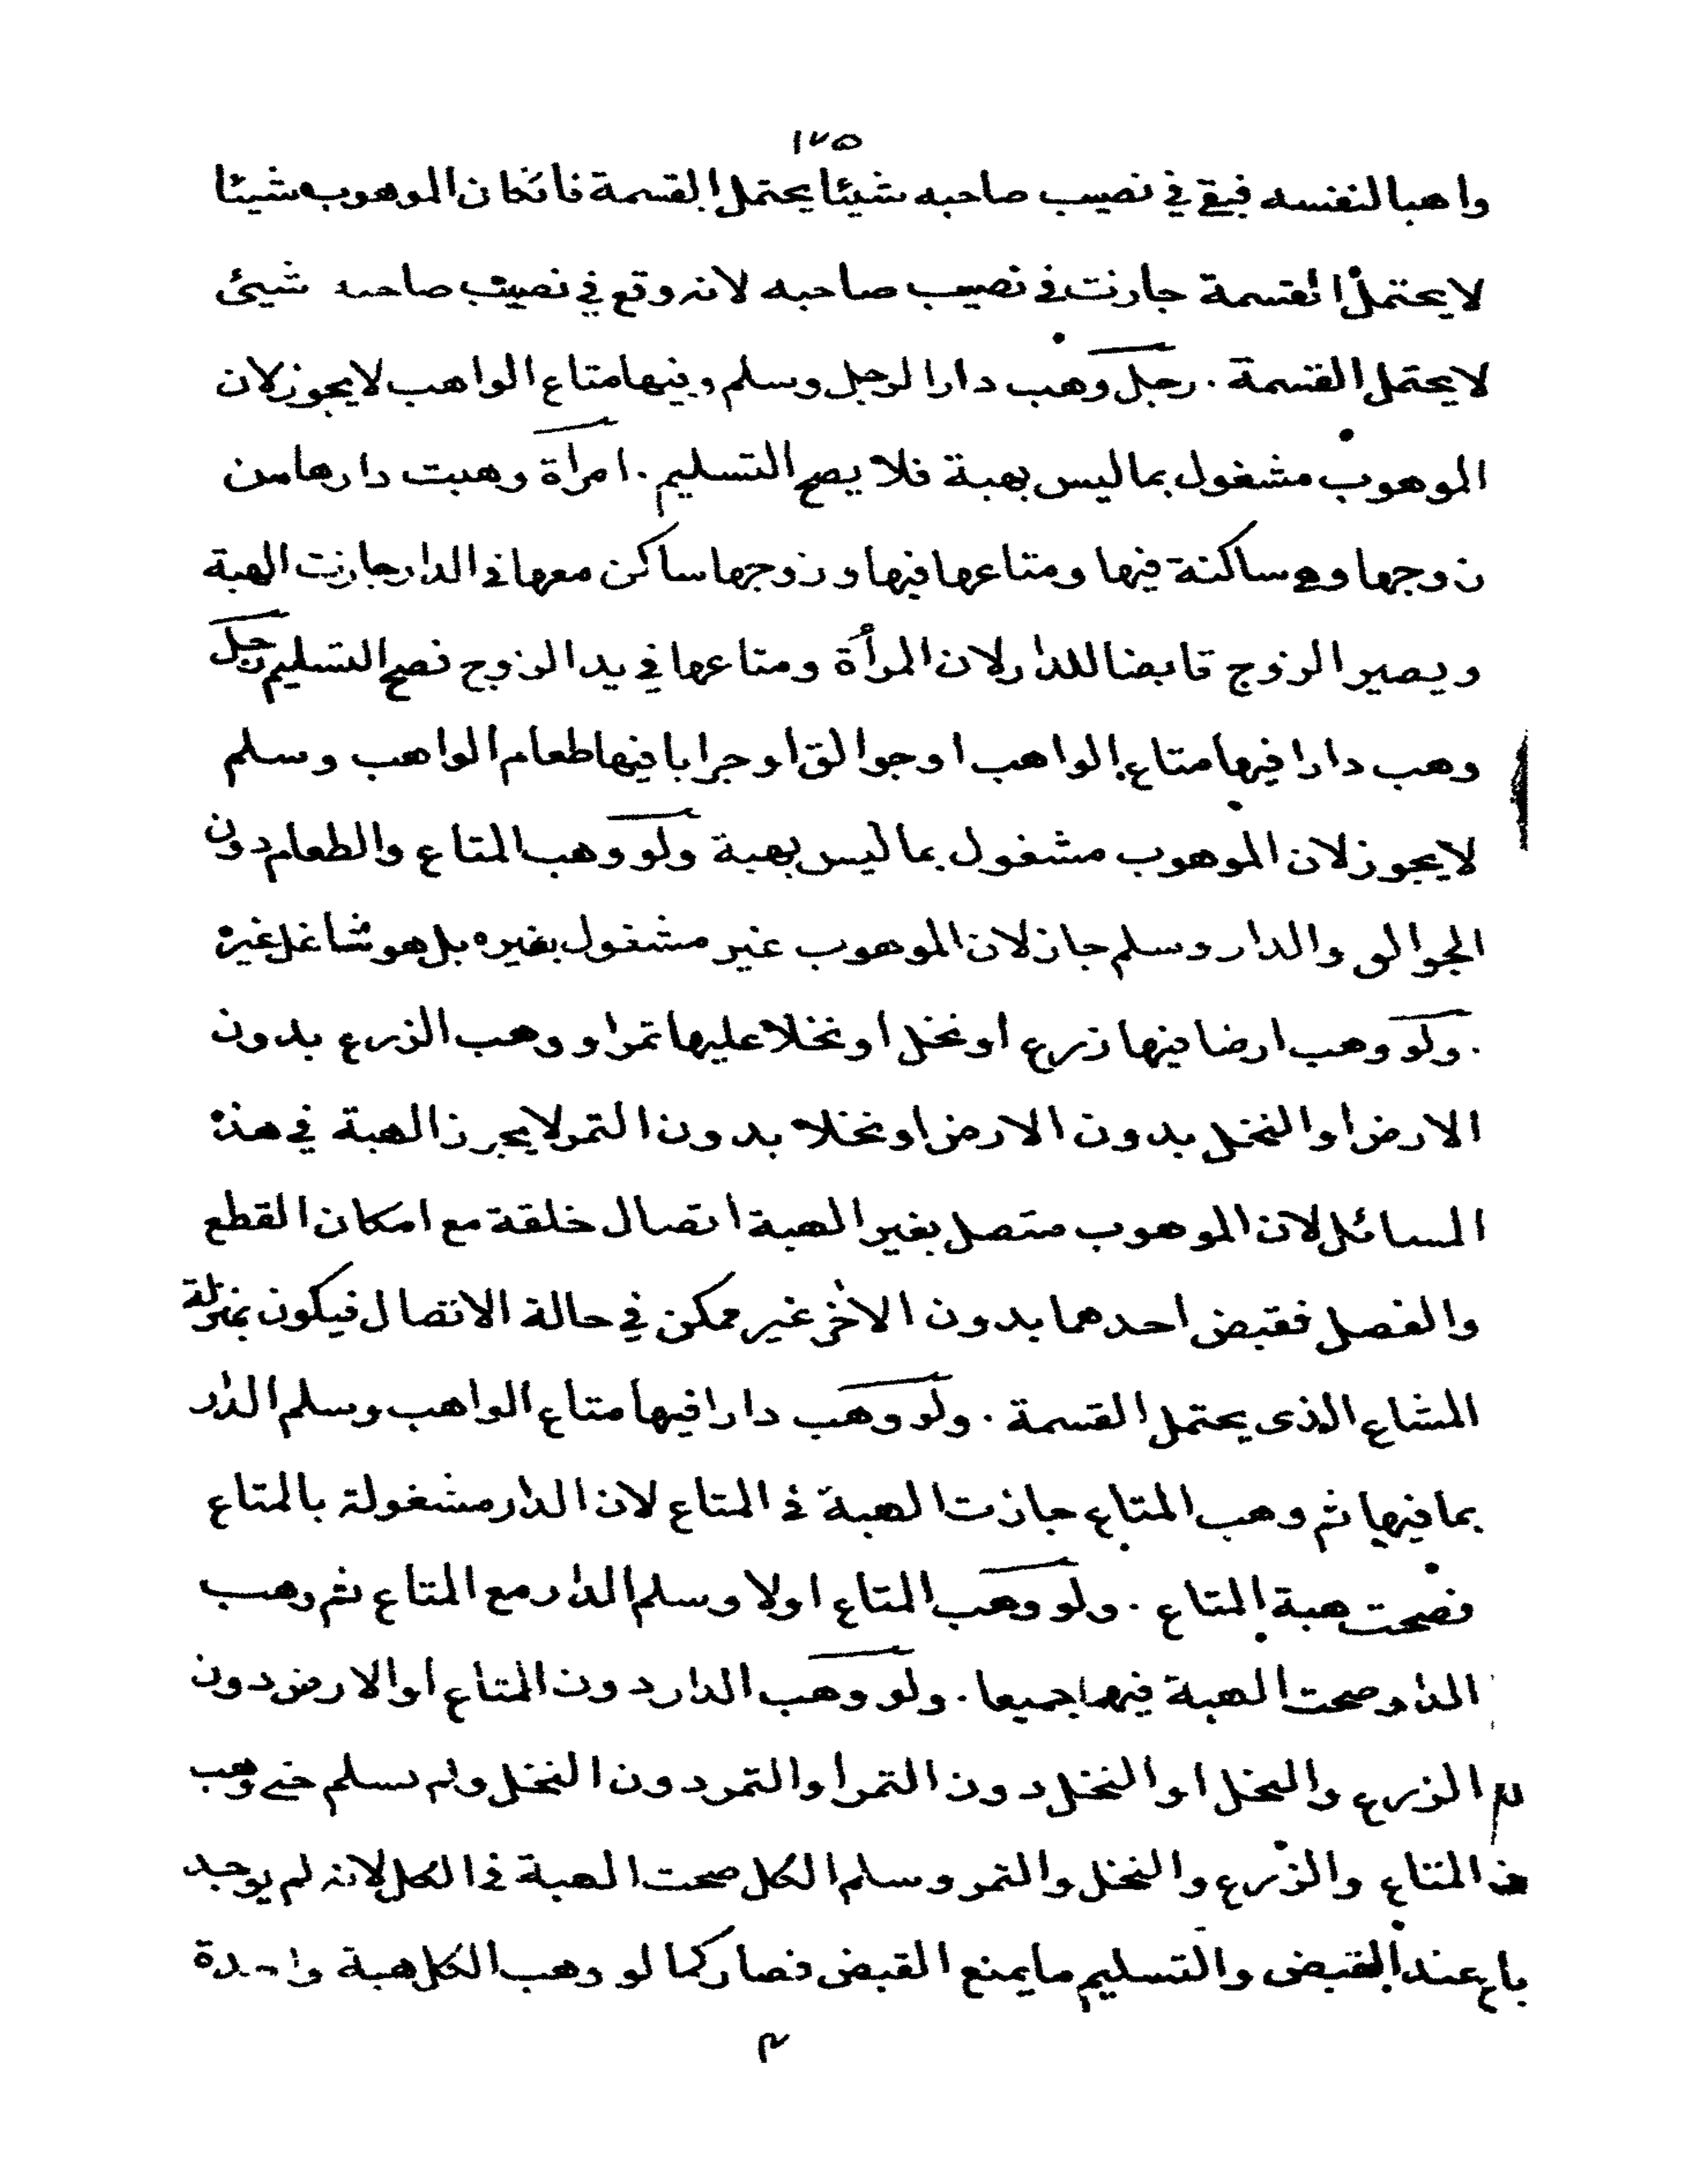 ١٢٥
واهبا لنفسه فبقى في نصيب صاحبه شيئا يحتمل القسمة فان كان الموهوب شيئا
لا يحتمل القسمة جازت في نصيب صاحبه لانه وقع في نصيب صاحبه شيئ
لا يحتمل القسمة . رجل وهب دارا لرجل وسلم وفيها متاع الواهب لا يجوز لان
الموهوب مشغول بما ليس بهبة فلا يصح التسليم . امرأة وهبت دارها من
زوجها وهى ساكنة فيها ومتاعها فيها وزوجها ساكن معها في الدار جازت الهبة
ويصير الزوج قابضا للدار لان المرأة ومتاعها في يد الزوج فصح التسليم رجل
وهب دارا فيها متاع الواهب او جوالق او جرابا فيها طعام الواهب وسلم
لا يجوز لان الموهوب مشغول بما ليس بهبة ولو وهب المتاع والطعام دون
الجوالق والدار وسلم جاز لان الموهوب غير مشغول بغيره بل هو شاغل غيره
. ولو وهب ارضا فيها زرع او نخل او نخلا عليها تمر او وهب الزرع بدون
الارض او النخل بدون الارض او نخلا بدون التمر لا يجوز الهبة في هذه
المسائل لان الموهوب متصل بغير الهبة اتصال خلقة مع امكان القطع
والفصل فقبض احدهما بدون الاخر غير ممكن في حالة الاتصال فيكون بمنزلة
المشاع الذى يحتمل القسمة . ولو وهب دارا فيها متاع الواهب وسلم الدار
بما فيها ثم وهب المتاع جازت الهبة في المتاع لان الدار مشغولة بالمتاع
فصحت هبة المتاع . ولو وهب المتاع اولا وسلم الدار مع المتاع ثم وهب
الدار صحت الهبة فيهما جميعا . ولو وهب الدار دون المتاع او الارض دون
الزرع والنخل او النخل دون التمر او التمر دون النخل ولم يسلم حتى وهب
المتاع والزرع والنخل والتمر وسلم الكل صحت الهبة في الكل لانه لم يوجد
عند القبض والتسليم ما يمنع القبض فصار كما لو وهب الكل هبة واحدة